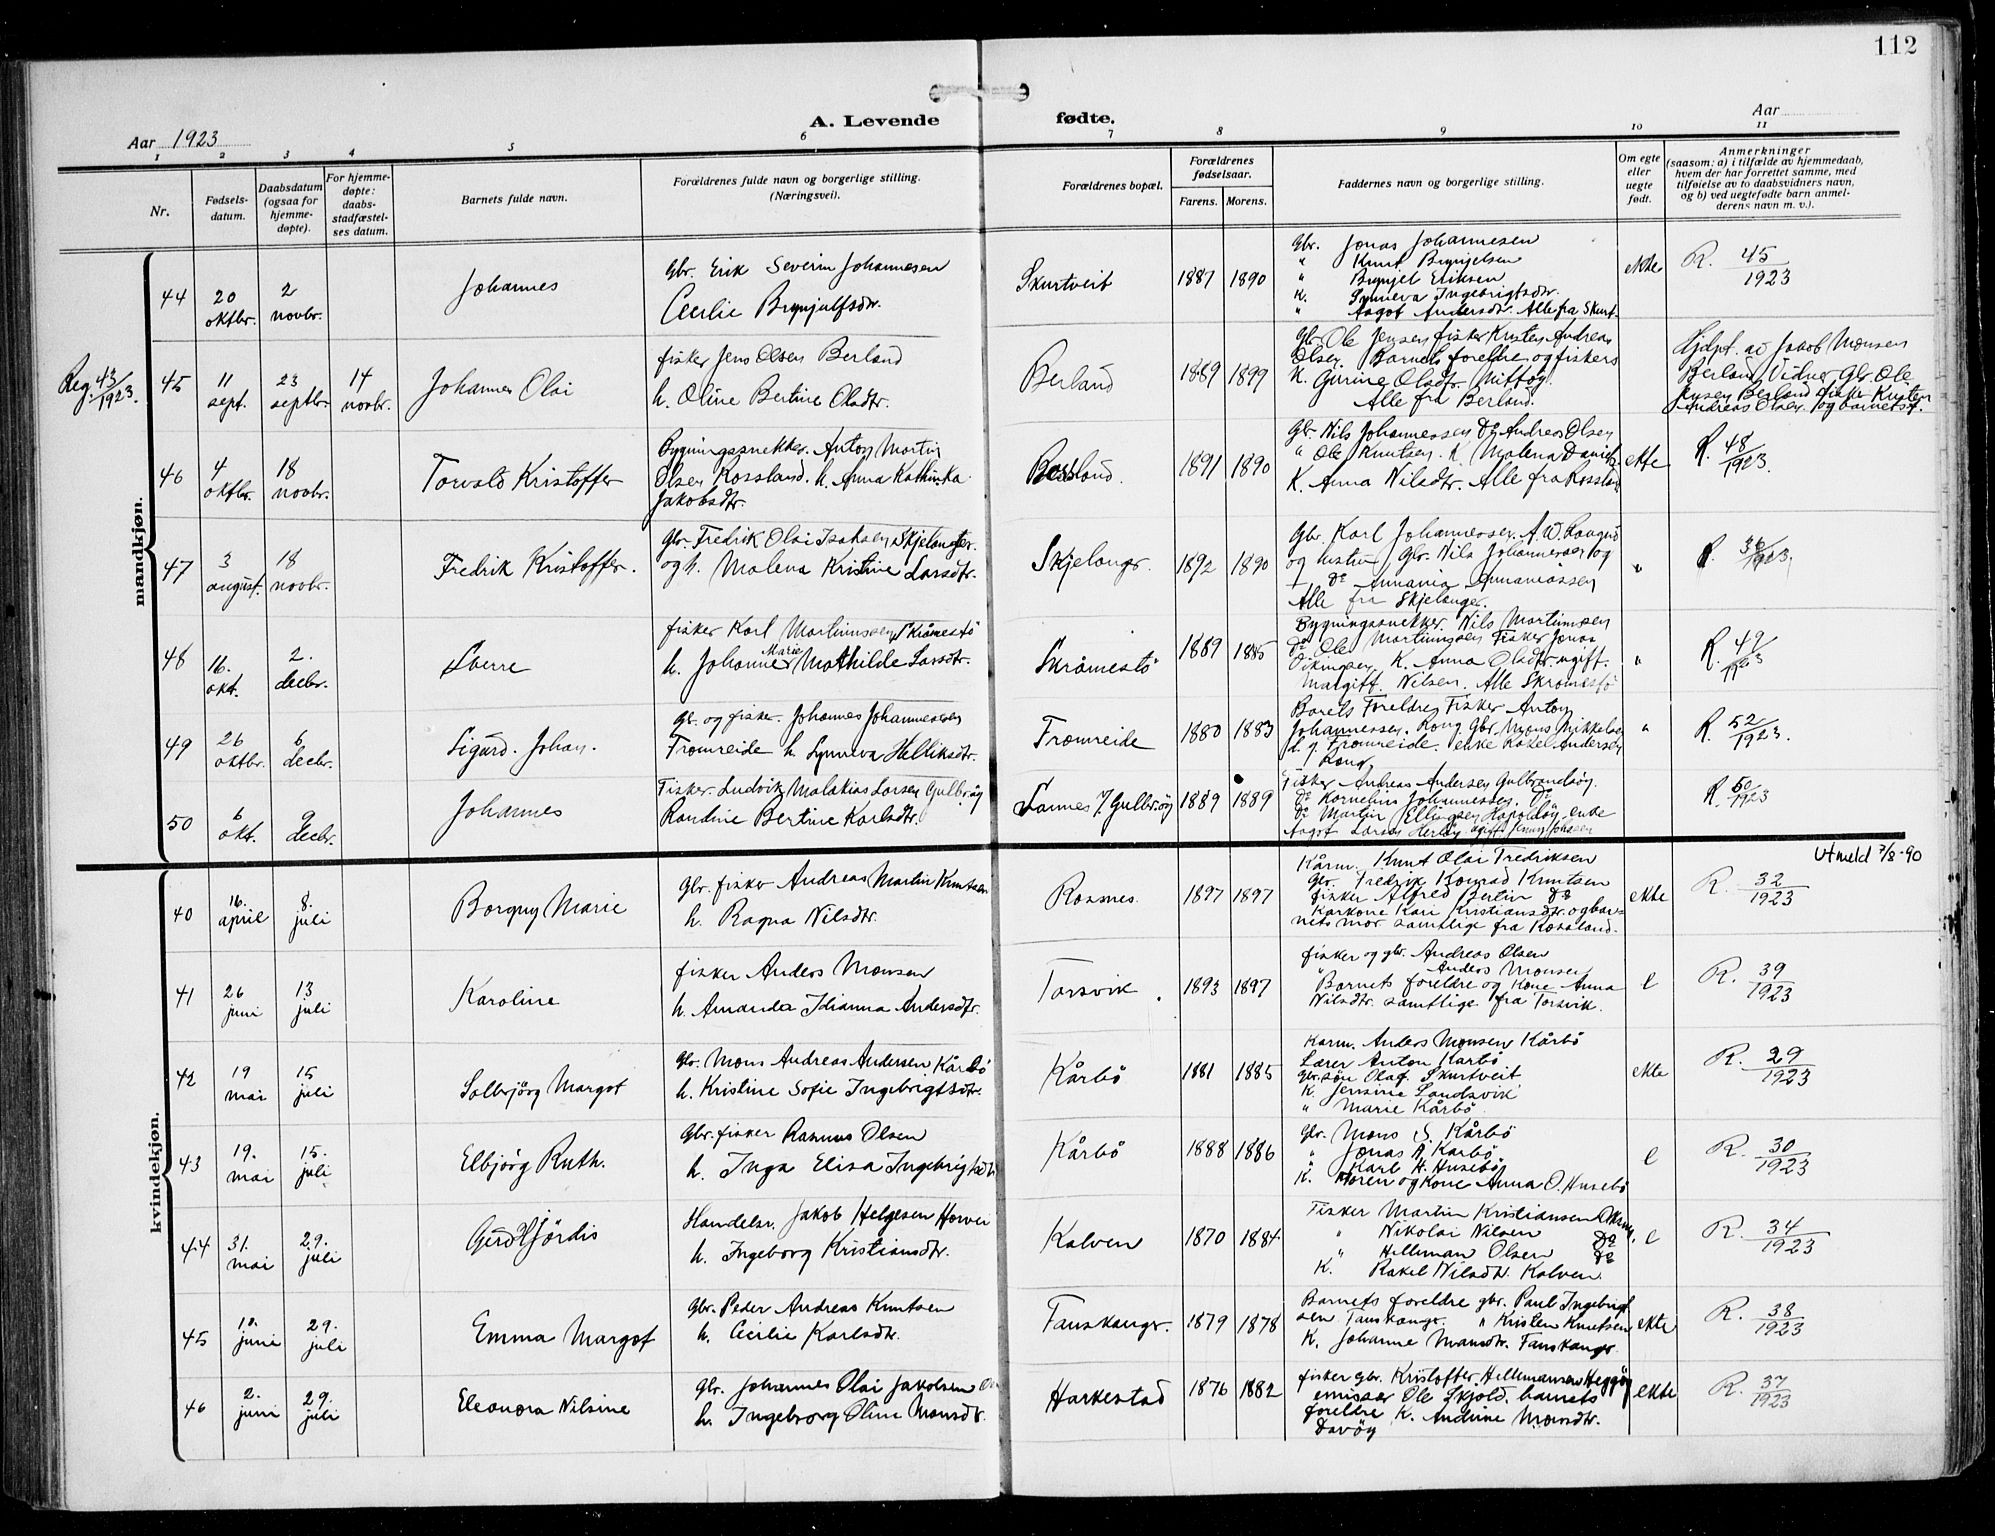 112
A. Levende fødte.
Aar 1923
Aar
1 2 3 4 5 6 7 8 9 10 11
Nr.
Fødsels-
datum.
Daabsdatum
(ogsaa for
hjemme-
døpte).
For hjemme-
døpte:
daabs-
stadfæstel-
ses datum.
Barnets fulde navn.
Forældrenes fulde navn og borgerlige stilling.
(Næringsvei).
Forældrenes bopæl.
Forældrenes
fødselsaar.
Farens. Morens.
Faddernes navn og borgerlige stilling.
Om egte
eller
uegte
født.
Anmerkninger
(saasom: a) i tilfælde av hjemmedaab,
hvem der har forrettet samme, med
tilføielse av to daabsvidners navn,
og b) ved uegtefødte barn anmel-
derens navn m. v.).
mandkjøn.
44
20
oktbr.
2
novbr.
Johannes
Gbr. Erik Severin Johannesen
Cecilie Brynjulfsdtr.
Skurtveit
1887 1890
Gbr. Jonas Johannesen
" Knut Brynjelsen
" Brynjel Eriksen
K. Synneva Ingebrigtsdtr.
" Aagot Andersdtr. Alle fra Skurt-
ekte
R. 45/1923
Reg. 43/1923.
45
11
sept.
23
septbr.
14
novbr.
Johannes Olai
fisker Jens Olsen Berland
h. Oline Bertine Olsdtr.
Berland
1889 1899
Gbr. Ole Jensen fisker Kristen Andreas
Olsen Barnets foreldre og fiskers
K. Gurine Olsdtr.
Alle fra Berland.
Hjdpt. av Jakob Monsen
Berland Vidner Gbr. Ole
Jensen Berland fisker Kristen
Andreas Olsen og barnets f.
46
4
oktbr.
18
novbr.
Torvald Kristoffer
Bygningssnekker. Anton Martin
Olsen Rossland. h. Anna Kathinka
Jakobsdtr.
Rossland.
1891 1890
Gbr. Nils Johannessen Do Andreas Olsen
" Ole Knutsen. K. Malena
K. Anna Nilsdtr. Alle fra Rossland
ekte
R. 48/1923.
47
3
august.
18
novbr.
Fredrik Kristoffer.
Gbr. Fredrik Olai Isaksen Skjelanger.
og h. Malena Kristine Larsdtr.
Skjelangr.
1892 1890
Gbr. Karl Johannessen. A. W.
og hustru Gbr. Nils Johannessen og
Do Annania Annaniassen
Alle fra Skjelanger.
"
R. 36/1923.
48
16.
okt.
2.
decbr.
Sverre
fisker Karl Martinussen, Skråmestö
h. Johanne Marie Mathilde Larsdtr.
Skråmestö
1889 1885
Bygningssnekker. Nils Martinusen
Do Ole Martinusen Fisker Jonas
Vikingsen K. Anna Olsdtr. ugift.
Margit Nilsen. Alle Skråmestö
"
R. 49/1923
49
26
oktbr.
6
decbr.
Sigurd. Johan.
Gbr. og fisker. Johannes Johannessen
Fromreide h. Synneva Helliksdtr.
Fromreide
1880 1883
Barets Foreldre Fisker Anton
Johannessen. Rong Gbr. Mons Mikkelsen
Fromreide. enke Rakel Andersen
Rong
"
R. 52/1923.
50
6
okt.
9
decbr.
Johannes
Fisker. Ludvik Malakias Larsen Gulbröy
Randine Bertine Karlsdtr.
Sannes / Gulbröy
1889 1889
Fisker Andreas Andersen Gulbrandsöy.
Do Kornelius Johannessen. Do
Do Martin Ellingsen enke
Aagot Larsen Herlöy ugift
R. 50/1923
kvindekjøn.
40
16.
april
8.
juli
Borgny Marie
Gbr. fisker Andreas Martin Knutsen
h. Ragna Nilsdtr.
Rosnes.
1897 1897
Kårm. Knut Olai Fredriksen
Gbr. Fredrik Konrad Knutsen
fisker Alfred Bertin Do
Karkone Kari Kristiansdtr. og bar=
nets mor samtlige fra Rossland.
ekte
Utmeld 7/8-90
R. 32/1923
41
26
juni
13
juli
Karoline
fisker Anders Monsen
h. Amanda Idianna Andersdtr.
Torsvik
1893 1897
fisker og gbr. Andreas Olsen
" Anders Monsen
Barnets foreldre og Kone Anna
Nilsdtr. samtlige fra Torsvik.
e
R. 39/1923
42
19
mai
15
juli
Solbjörg Margot
Gbr. Mons Andreas Andersen Kårbö
h. Kristine Sofie Ingebrigtsdtr.
Kårbö
1881 1885
Karm. Anders Monsen Kårbö
Lærer Anton Kårbö
Gbr.søn Olaf Skurtveit
K. Jensine Landsvik
" Marie Kårbö
ekte
R. 29/1923
43
19.
mai
15.
juli
Elbjörg Ruth.
Gbr. fisker Rasmus Olsen
h. Inga Elisa Ingebrigtsdtr
Kårbö
1888 1886
Gbr. Mons S. Kårbö
" Jonas A. Kårbö
" Karl H. Husebö
K. Moren og Kone Anna O. Husebö
e
R. 30/1923
44
31.
mai
29.
juli
Gerd Hjördis
Handelsr. Jakob Helgesen Horvei
h. Ingeborg Kristiansdtr.
Kalven
1870 1884
Fisker Martin Kristiansen
" Nikolai Nilsen Do
" Hilleman Olsen Do
K. Rakel Nilsdtr. Kalven.
e
R. 34/1923
45
10.
juni
29.
juli
Emma Margot
Gbr. Peder Andreas Knutsen
h. Cecilie Karlsdtr.
Fauskangr.
1879 1878
Barnets foreldre gbr. Paul Ingebrigt
sen Fauskangr. " Kristen Knutsen
K. Johanne Monsdtr. Fauskangr
ekte
R. 38/1923
46
2.
juni
29.
juli
Eleonora Nilsine
Gbr. Johannes Olai Jakobsen
h. Ingeborg Oline Monsdtr.
Harkestad
1876 1882
fisker gbr. Kristoffer Hillemansen Heggöy
emissær Ole Skjold. barnets
foreldre K. Andrine Monsdtr.
Davöy
ekte
R. 37/1923